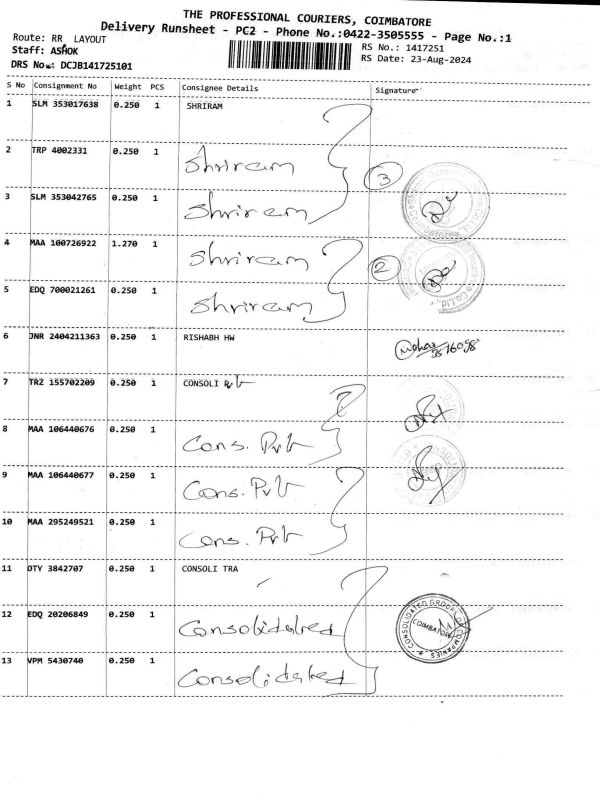 THE PROFESSIONAL COURIERS, COIMBATORE
Delivery Runsheet - PC2 - Phone No.:0422-3505555 - Page No.:1
Route: RR LAYOUT
RS No.: 1417251
Staff: ASHOK
RS Date: 23-Aug-2024
DRS No.: DCJB141725101
S No Consignment No Weight PCS Consignee Details Signature
1 SLM 353017638 0.250 1 SHRIRAM
2 TRP 4002331 0.250 1 Shriram
3
3 SLM 353042765 0.250 1 Shriram
4 MAA 100726922 1.270 1 Shriram
2
5 EDQ 700021261 0.250 1 Shriram
6 JNR 2404211363 0.250 1 RISHABH HW
7 TRZ 155702209 0.250 1 CONSOLI Pvt
8 MAA 106440676 0.250 1 Cons. Pvt
9 MAA 106440677 0.250 1 Cons. Pvt
10 MAA 295249521 0.250 1 Cons. Pvt
11 OTY 3842707 0.250 1 CONSOLI TRA
12 EDQ 20206849 0.250 1 Consolidated
CONSOLIDATED GROUPS OF COMPANIES
COIMBATORE
13 VPM 5430740 0.250 1 Consolidated